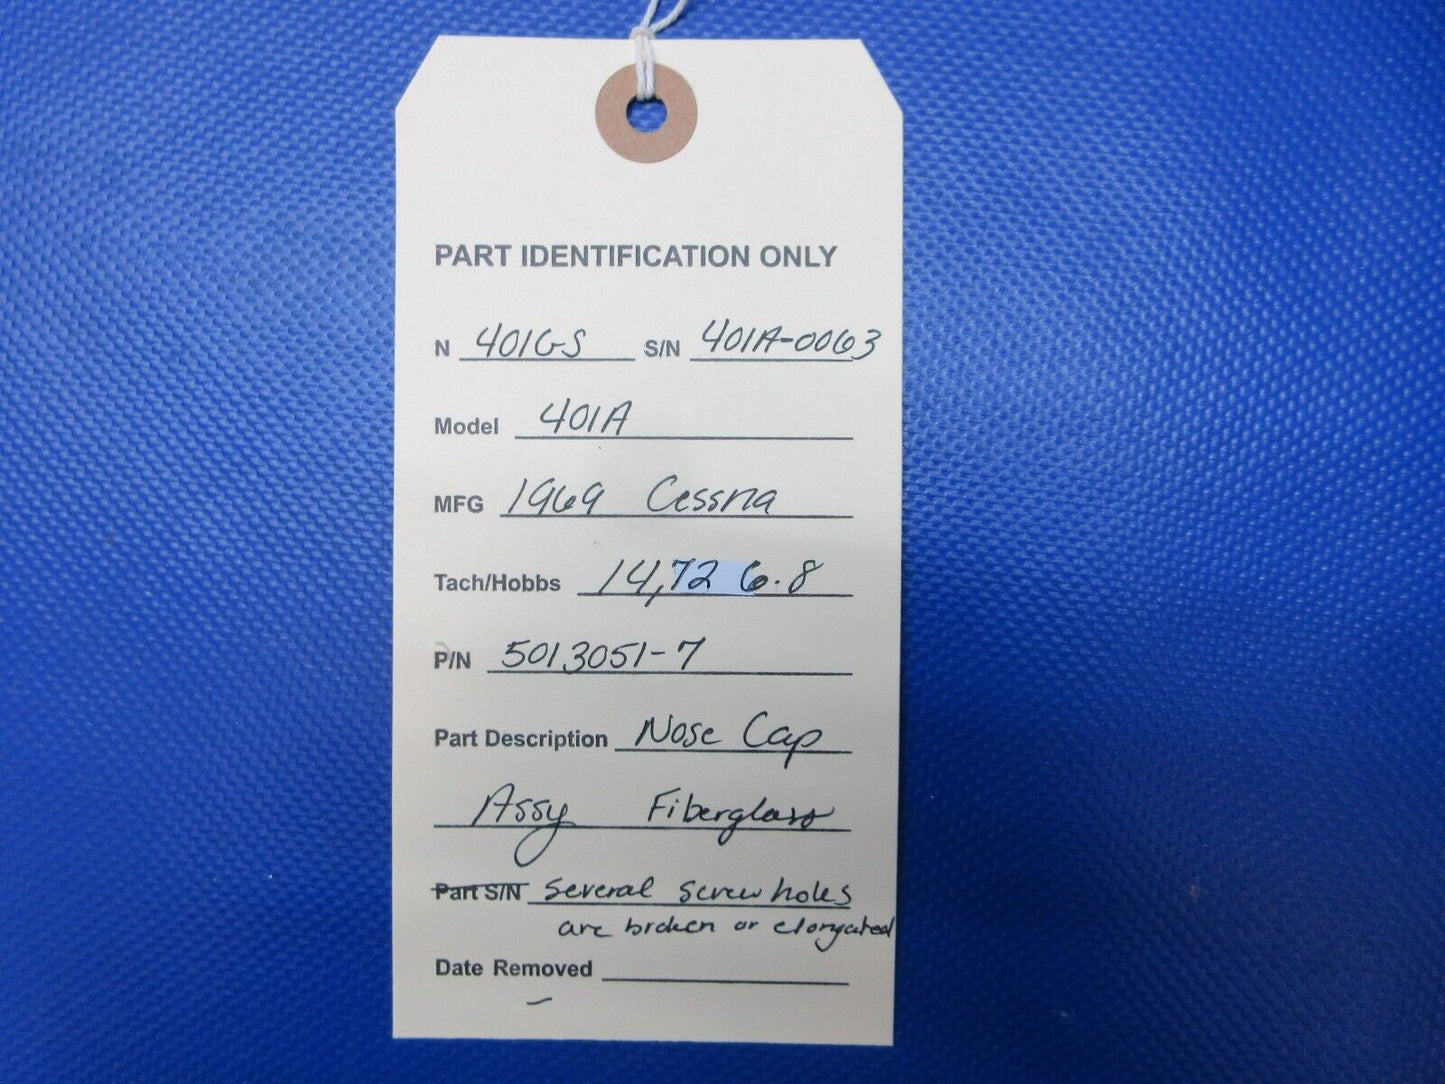 PART IDENTIFICATION ONLY
N 401GS S/N 401A-0063
Model 401A
MFG 1969 Cessna
Tach/Hobbs 14,726.8
P/N 5013051-7
Part Description Nose Cap
Assy Fiberglass
Part S/N Several screw holes
are broken or elongated
Date Removed